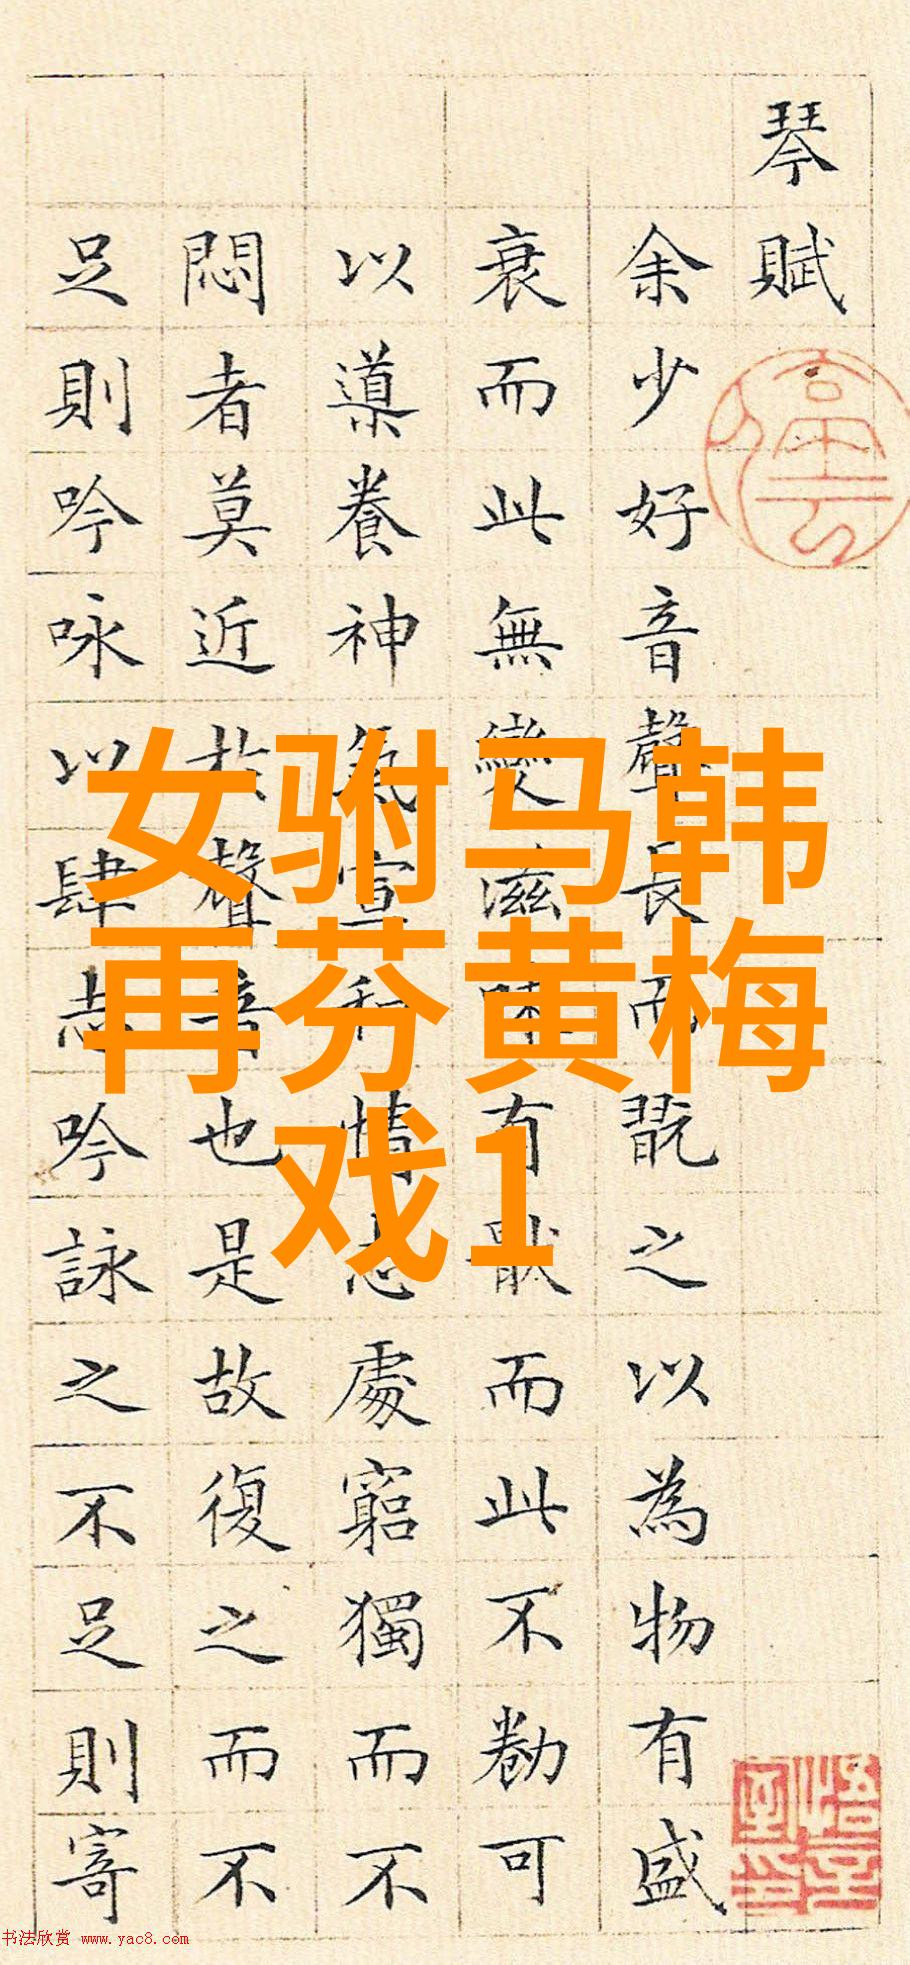 琴賦
余少好音聲長而翫之以為物有盛
衰而此無變滋味有猒而此不勌可
以導養神氣宣和情志處窮獨而不
悶者莫近於聲音也是故復之而不
足則吟咏以肆志吟詠之不足則寄
女驸马韩
再芬黄梅
戏1
书法欣赏 www.yac8.com